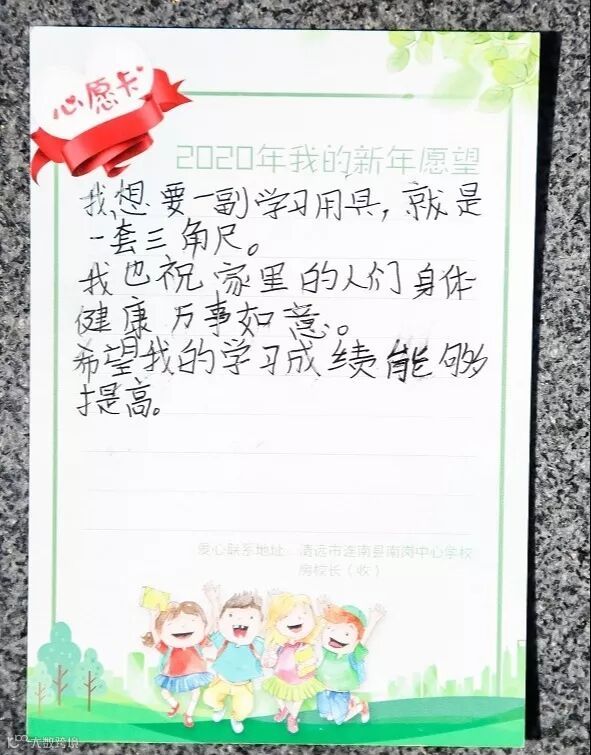 心愿卡
2020年我的新年愿望
我想要一副学习用具，就是
一套三角尺。
我也祝家里的人们身体
健康万事如意。
希望我的学习成绩能够
提高。
爱心联系地址：清远市连南县南岗中心学校
房校长（收）
大数跨境